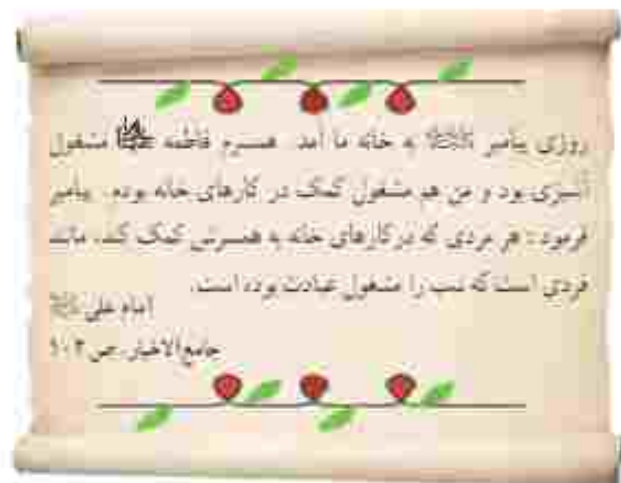 روزی پیامبر ﷺ به خانه ما آمد. همسرم فاطمه علیها مشغول
آشپزی بود و من هم مشغول کمک در کارهای خانه بودم. پیامبر
فرمود: هر مردی که در کارهای خانه به همسرش کمک کند، مانند
فردی است که شب را مشغول عبادت بوده است.
امام علی
جامع‌الاخبار، ص ۱۰۲